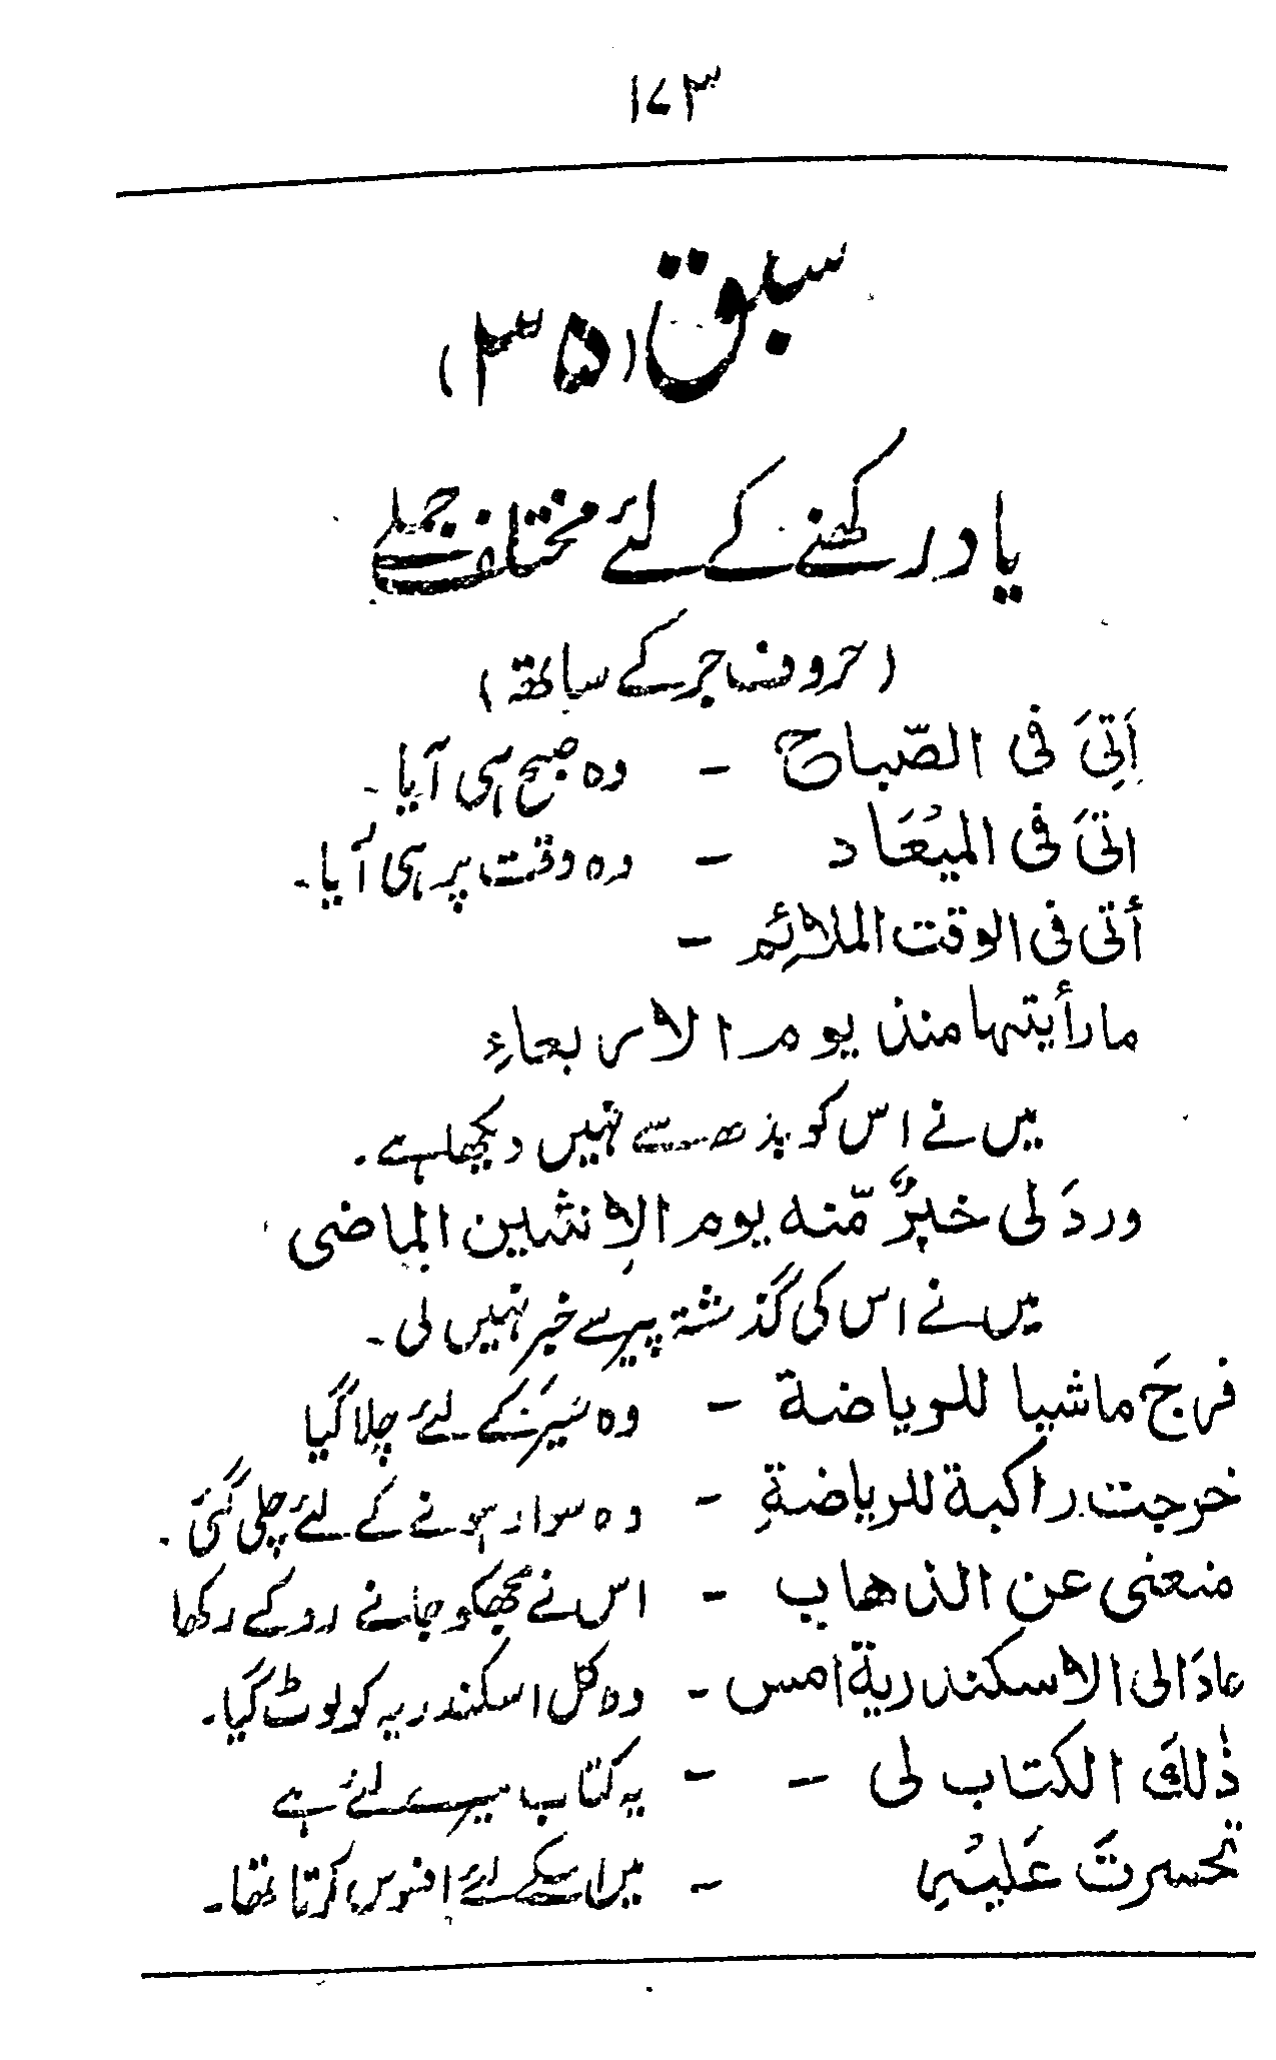 ۱۷۳
سبق (۳۵)
یاد رکھنے کے لئے مختلف جملے
(حروف جر کے ساتھ)
اَتِیَ فی الصّباح - وہ صبح ہی آیا۔
اتیَ فی المیْعَاد - وہ وقت پر ہی آیا۔
أتی فی الوقت الملائِم -
ما رأیتہا منذ یوم الاربعاءِ
میں نے اس کو بدھ سے نہیں دیکھا ہے۔
وردَ لی خبرٌ مّنہ یوم الاِنثین الماضی
میں نے اس کی گذشتہ پیر سے خبر نہیں لی۔
فرجَ ماشیا للریاضة - وہ سَیر کے لئے چلا گیا
خرجت راکبة للریاضةِ - وہ سوار ہونے کے لئے چلی گئی۔
منعنی عن الذھاب - اس نے مجھکو جانے روکے رکھا
عادَ الی الاسکندریة امس - وہ کل اسکندریہ کو لوٹ گیا۔
ذٰلکَ الکتاب لی - - یہ کتاب میرے لئے ہے
تحسرتَ عَلیْہِ - میں اسکے لئے افسوس کرتا تھا۔